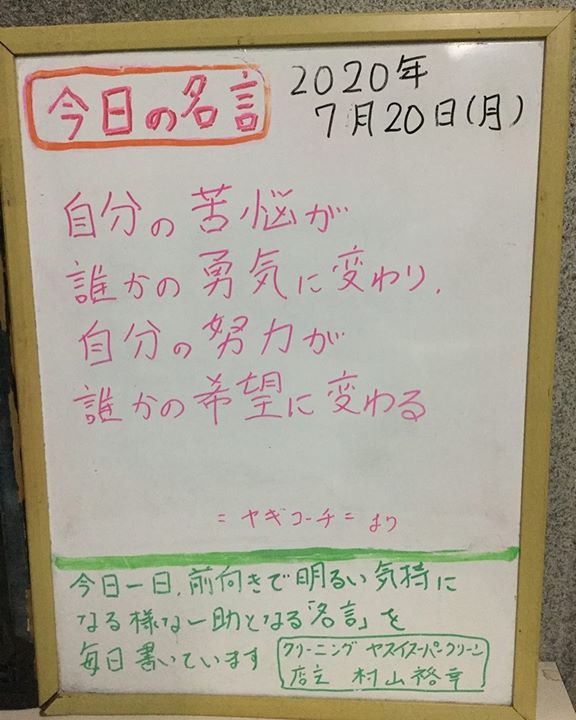 今日の名言
2020年
7月20日(月)
自分の苦悩が
誰かの勇気に変わり、
自分の努力が
誰かの希望に変わる
=ヤギコーチ=より
今日一日、前向きで明るい気持に
なる様な一助となる「名言」を
毎日書いています
クリーニング ヤスイスーパークリーン
店主 村山裕幸